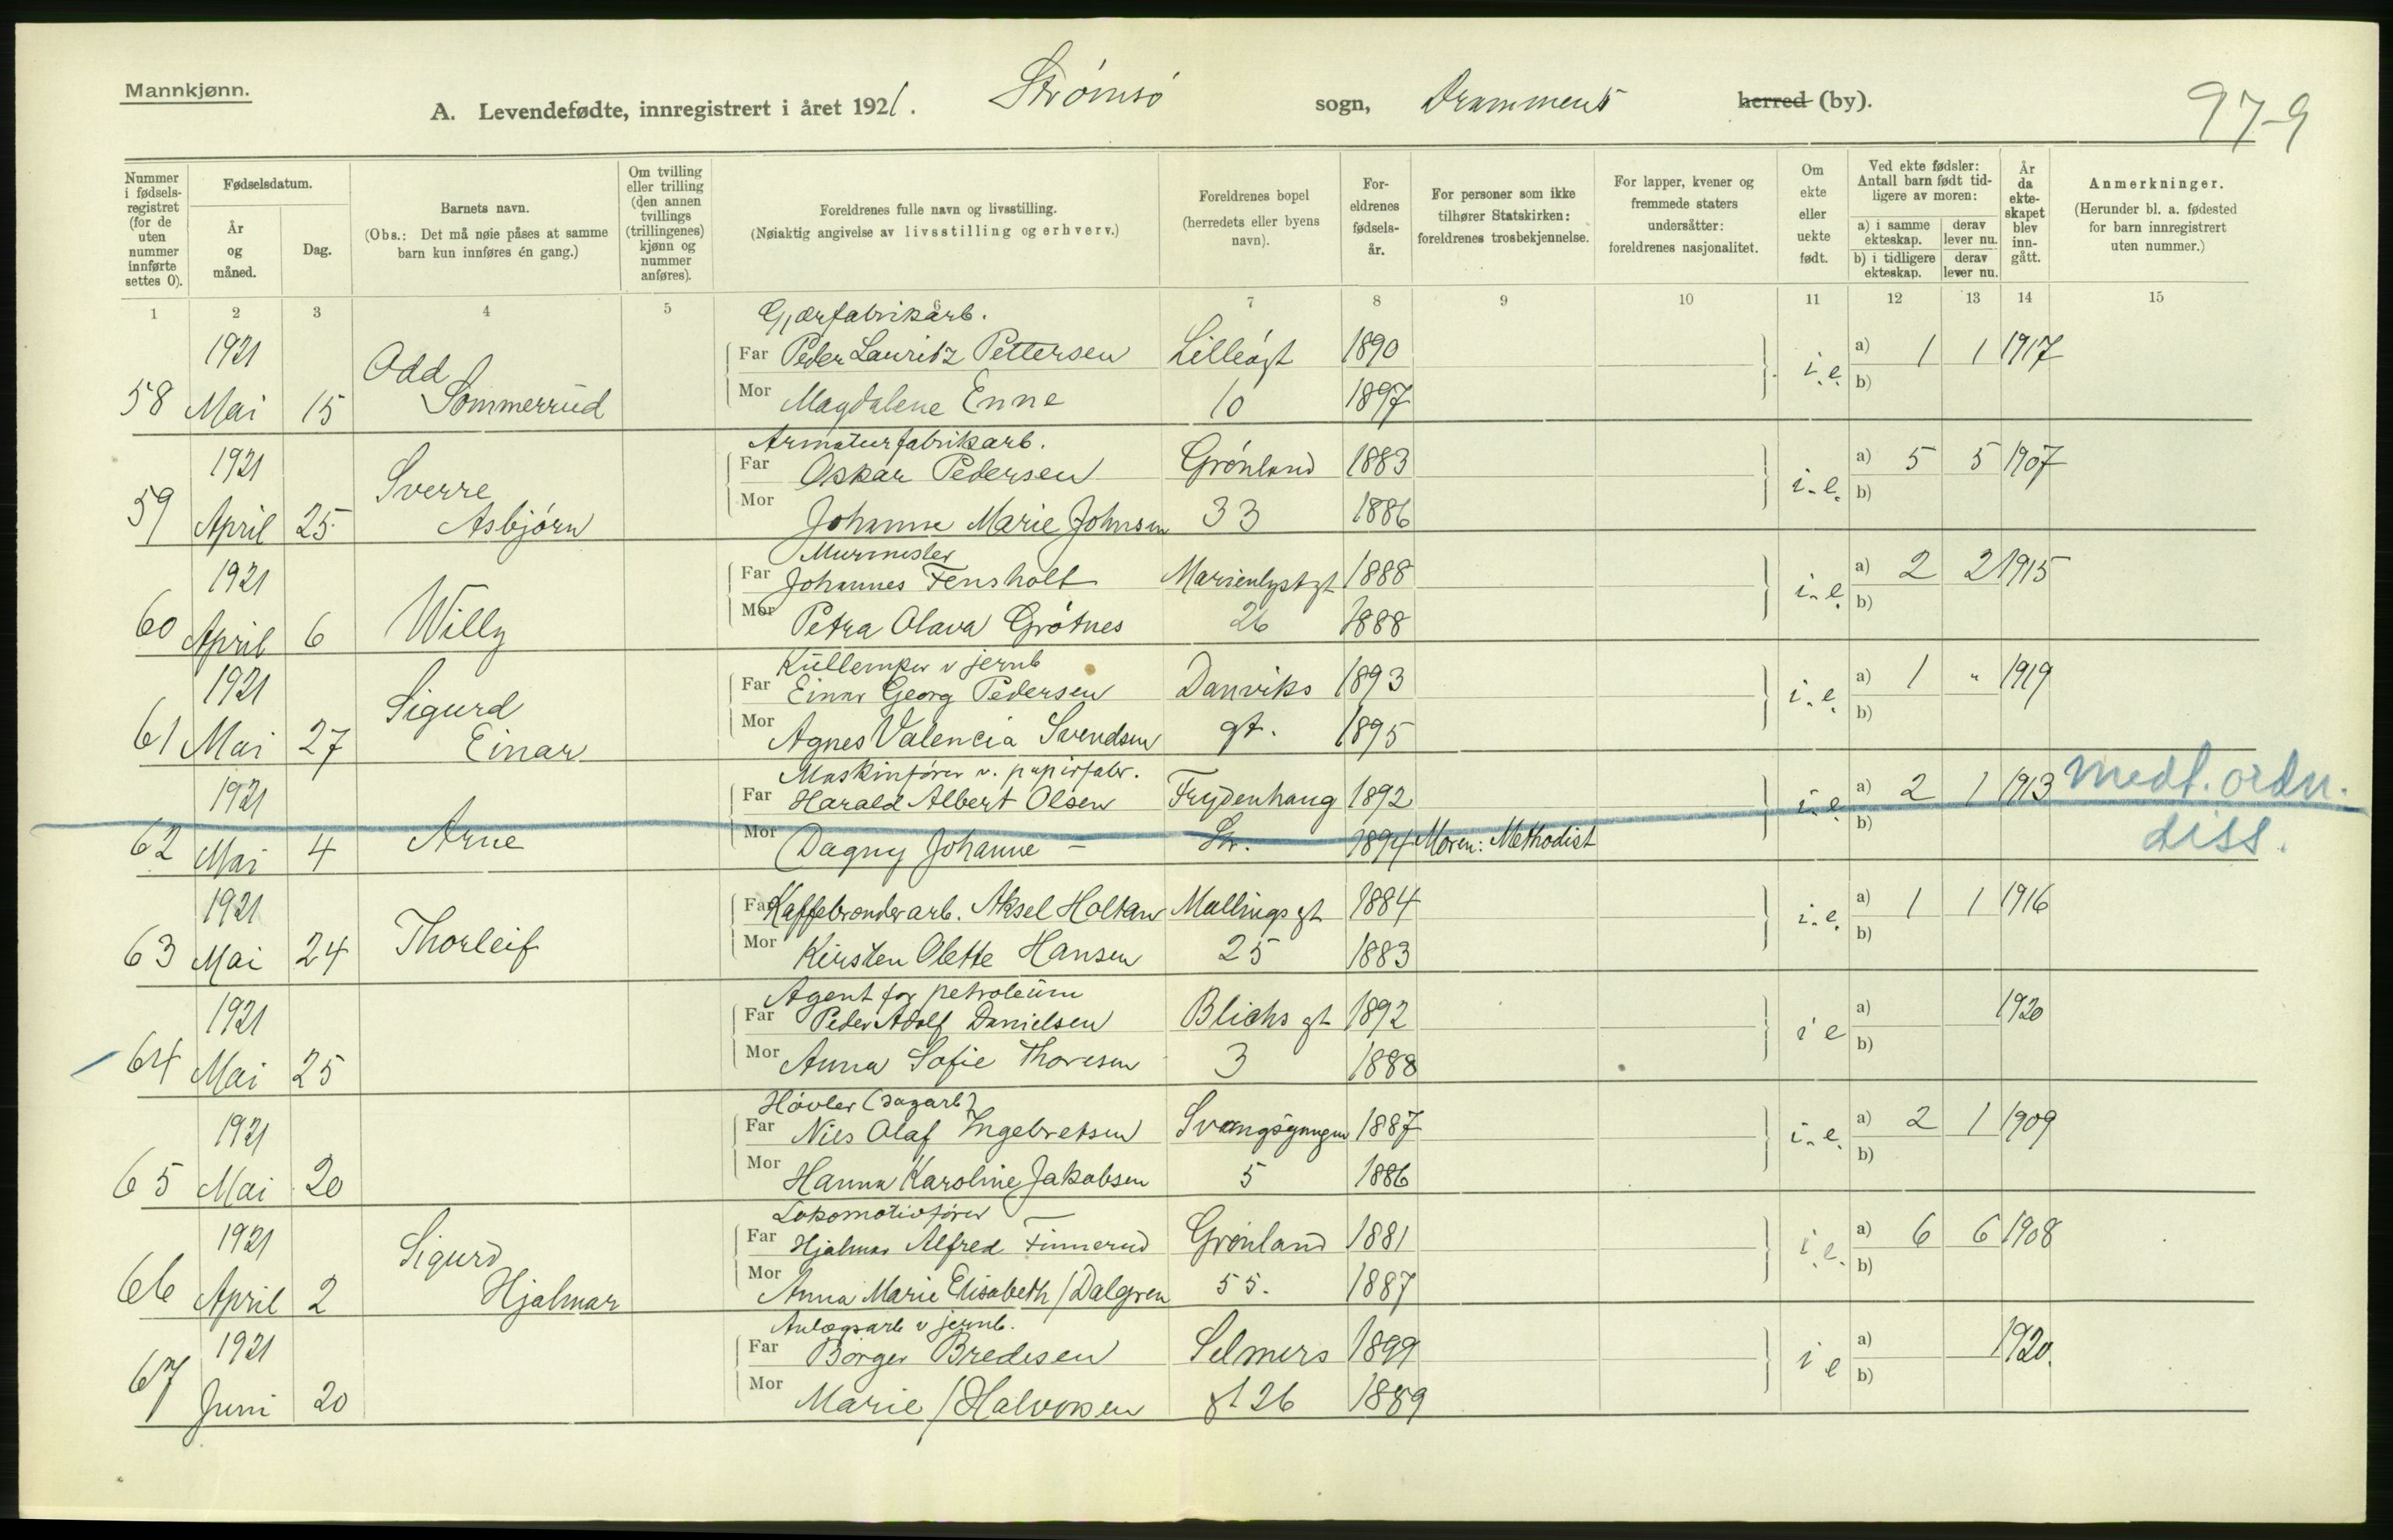 Mannkjønn.
A. Levendefødte, innregistrert i året 1921. Strømsø sogn, Drammens herred (by).
97-9
Nummer i fødsels-registret (for de uten nummer innførte settes 0).
Fødselsdatum.
År og måned.
Dag.
Barnets navn.
(Obs.: Det må nøie påses at samme barn kun innføres én gang.)
Om tvilling eller trilling (den annen tvillings (trillingenes) kjønn og nummer anføres).
Foreldrenes fulle navn og livsstilling.
(Nøiaktig angivelse av livsstilling og erhverv.)
Foreldrenes bopel (herredets eller byens navn).
For-eldrenes fødsels-år.
For personer som ikke tilhører Statskirken: foreldrenes trosbekjennelse.
For lapper, kvener og fremmede staters undersåtter: foreldrenes nasjonalitet.
Om ekte eller uekte født.
Ved ekte fødsler: Antall barn født tid-ligere av moren:
a) i samme ekteskap. derav lever nu.
b) i tidligere ekteskap. derav lever nu.
År da ekte-skapet blev inn-gått.
Anmerkninger.
(Herunder bl. a. fødested for barn innregistrert uten nummer.)
1 2 3 4 5 6 7 8 9 10 11 12 13 14 15
Gjærfabrikarb.
1921 Odd Far Peder Lauritz Pettersen Lilleågt 1890 i.e. a) 1 1 1917
58 Mai 15 Sommerrud Mor Magdalene Enne 10 1897 b)
Armaturfabrikarb.
1921 Sverre Far Oskar Pedersen Grønland 1883 i.e. a) 5 5 1907
59 April 25 Asbjørn Mor Johanne Marie Johnsen 33 1886 b)
Murmester
1921 Far Johannes Fensholt Marienlystgt 1888 i.e. a) 2 2 1915
60 April 6 Willy Mor Petra Olava Grøtnes 26 1888 b)
Kullemper v jernb
1921 Sigurd Far Einar Georg Pedersen Danviks 1893 i.e. a) 1 " 1919
61 Mai 27 Einar Mor Agnes Valencia Svendsen gt. 1895 b)
Maskinfører v. papirfabr.
1921 Far Harald Albert Olsen Frydenhaug 1892 i.e. a) 2 1 1913 medt. ordn.
62 Mai 4 Arne Mor Dagny Johanne – 1894 Moren: Methodist b) diss.
1921 Far Kaffebrenderarb. Aksel Holtan Mallings gt 1884 i.e. a) 1 1 1916
63 Mai 24 Thorleif Mor Kirsten Olette Hansen 25 1883 b)
Agent for petroleum
1921 Far Peder Adolf Danielsen Blichs gt 1892 i e a) 1920
64 Mai 25 Mor Anna Sofie Thoresen 3 1888 b)
Høvler (sagarb)
1921 Far Nils Olaf Ingebretsen Svangsgangen 1887 i.e. a) 2 1 1909
65 Mai 20 Mor Hanna Karoline Jakobsen 5 1886 b)
Lokomotivfører
1921 Sigurd Far Hjalmar Alfred Finnerud Grønland 1881 i.e. a) 6 6 1908
66 April 2 Hjalmar Mor Anna Marie Elisabeth / Dalgren 55. 1887 b)
Anlægsarb v jernb.
1921 Far Borger Bredesen Selmers 1899 i e a) 1920.
67 Juni 20 Mor Marie / Halvorsen gt 26 1889 b)